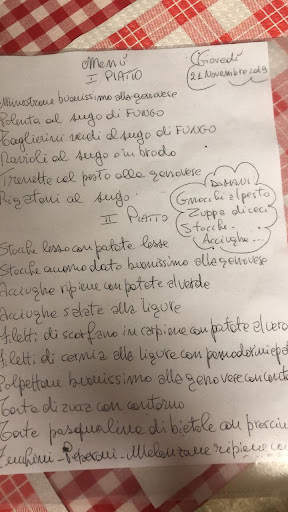 Menù
I PIATTO
Giovedì
21 Novembre 2019
Minestrone buonissimo alla genovese
Polenta al sugo di FUNGO
Taglierini verdi al sugo di FUNGO
Ravioli al sugo o in brodo
Trenette col pesto alla genovese
Rigatoni al sugo
DOMANI
Gnocchi al pesto
Zuppa di ceci
Stocche -
Acciughe...
II PIATTO
Stocche lesso con patate lesse
Stocche accomodato buonissimo alla genovese
Acciughe ripiene con patate al verde
Acciughe salate alla ligure
Filetti di scorfano in carpione con patate al verde
Filetti di cernia alla ligure con pomodorini e pat
Polpettone buonissimo alla genovese con conto
Torta di zucca con contorno
Torte pasqualina di bietole con prosciu
Zucchini - Peperoni - Melanzane ripiene con